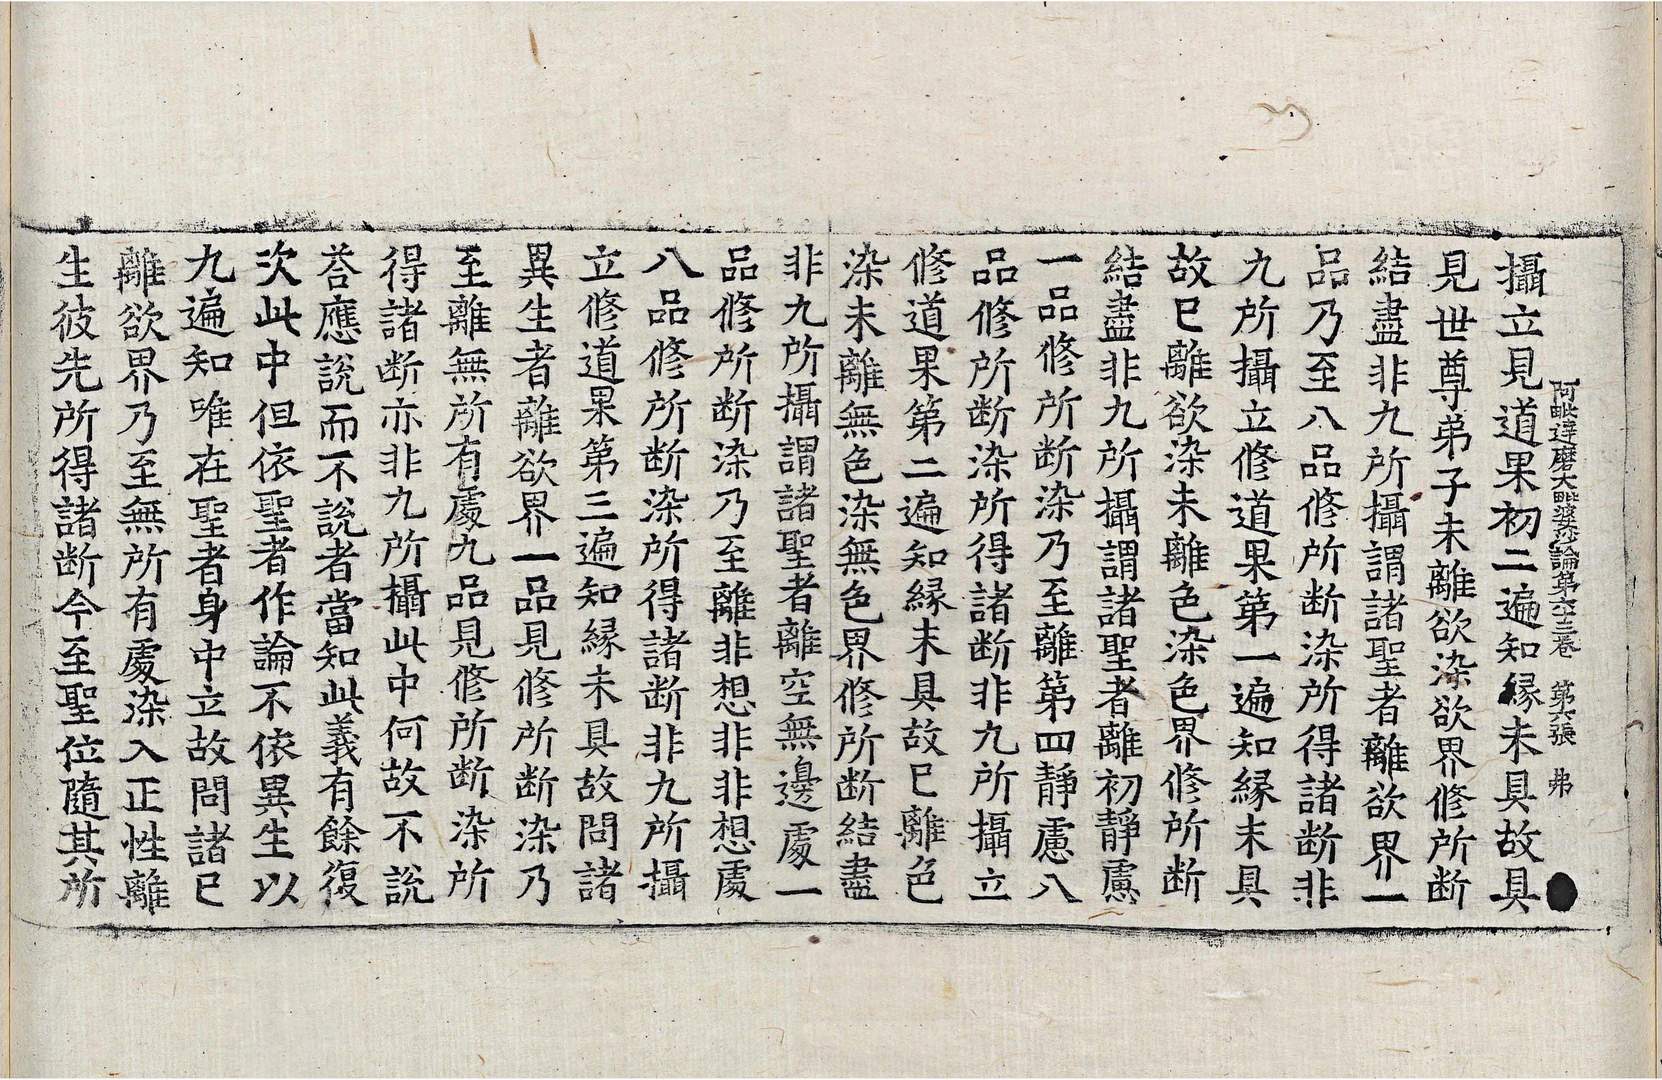 阿毗達磨大毗婆沙論第六十三卷 第六張 弗
攝立見道果初二遍知緣未具故具
見世尊弟子未離欲染欲界修所斷
結盡非九所攝謂諸聖者離欲界一
品乃至八品修所斷染所得諸斷非
九所攝立修道果第一遍知緣未具
故已離欲染未離色染色界修所斷
結盡非九所攝謂諸聖者離初靜慮
一品修所斷染乃至離第四靜慮八
品修所斷染所得諸斷非九所攝立
修道果第二遍知緣未具故已離色
染未離無色染無色界修所斷結盡
非九所攝謂諸聖者離空無邊處一
品修所斷染乃至離非想非非想處
八品修所斷染所得諸斷非九所攝
立修道果第三遍知緣未具故問諸
異生者離欲界一品見修所斷染乃
至離無所有處九品見修所斷染所
得諸斷亦非九所攝此中何故不說
荅應說而不說者當知此義有餘復
次此中但依聖者作論不依異生以
九遍知唯在聖者身中立故問諸已
離欲界乃至無所有處染入正性離
生彼先所得諸斷今至聖位隨其所